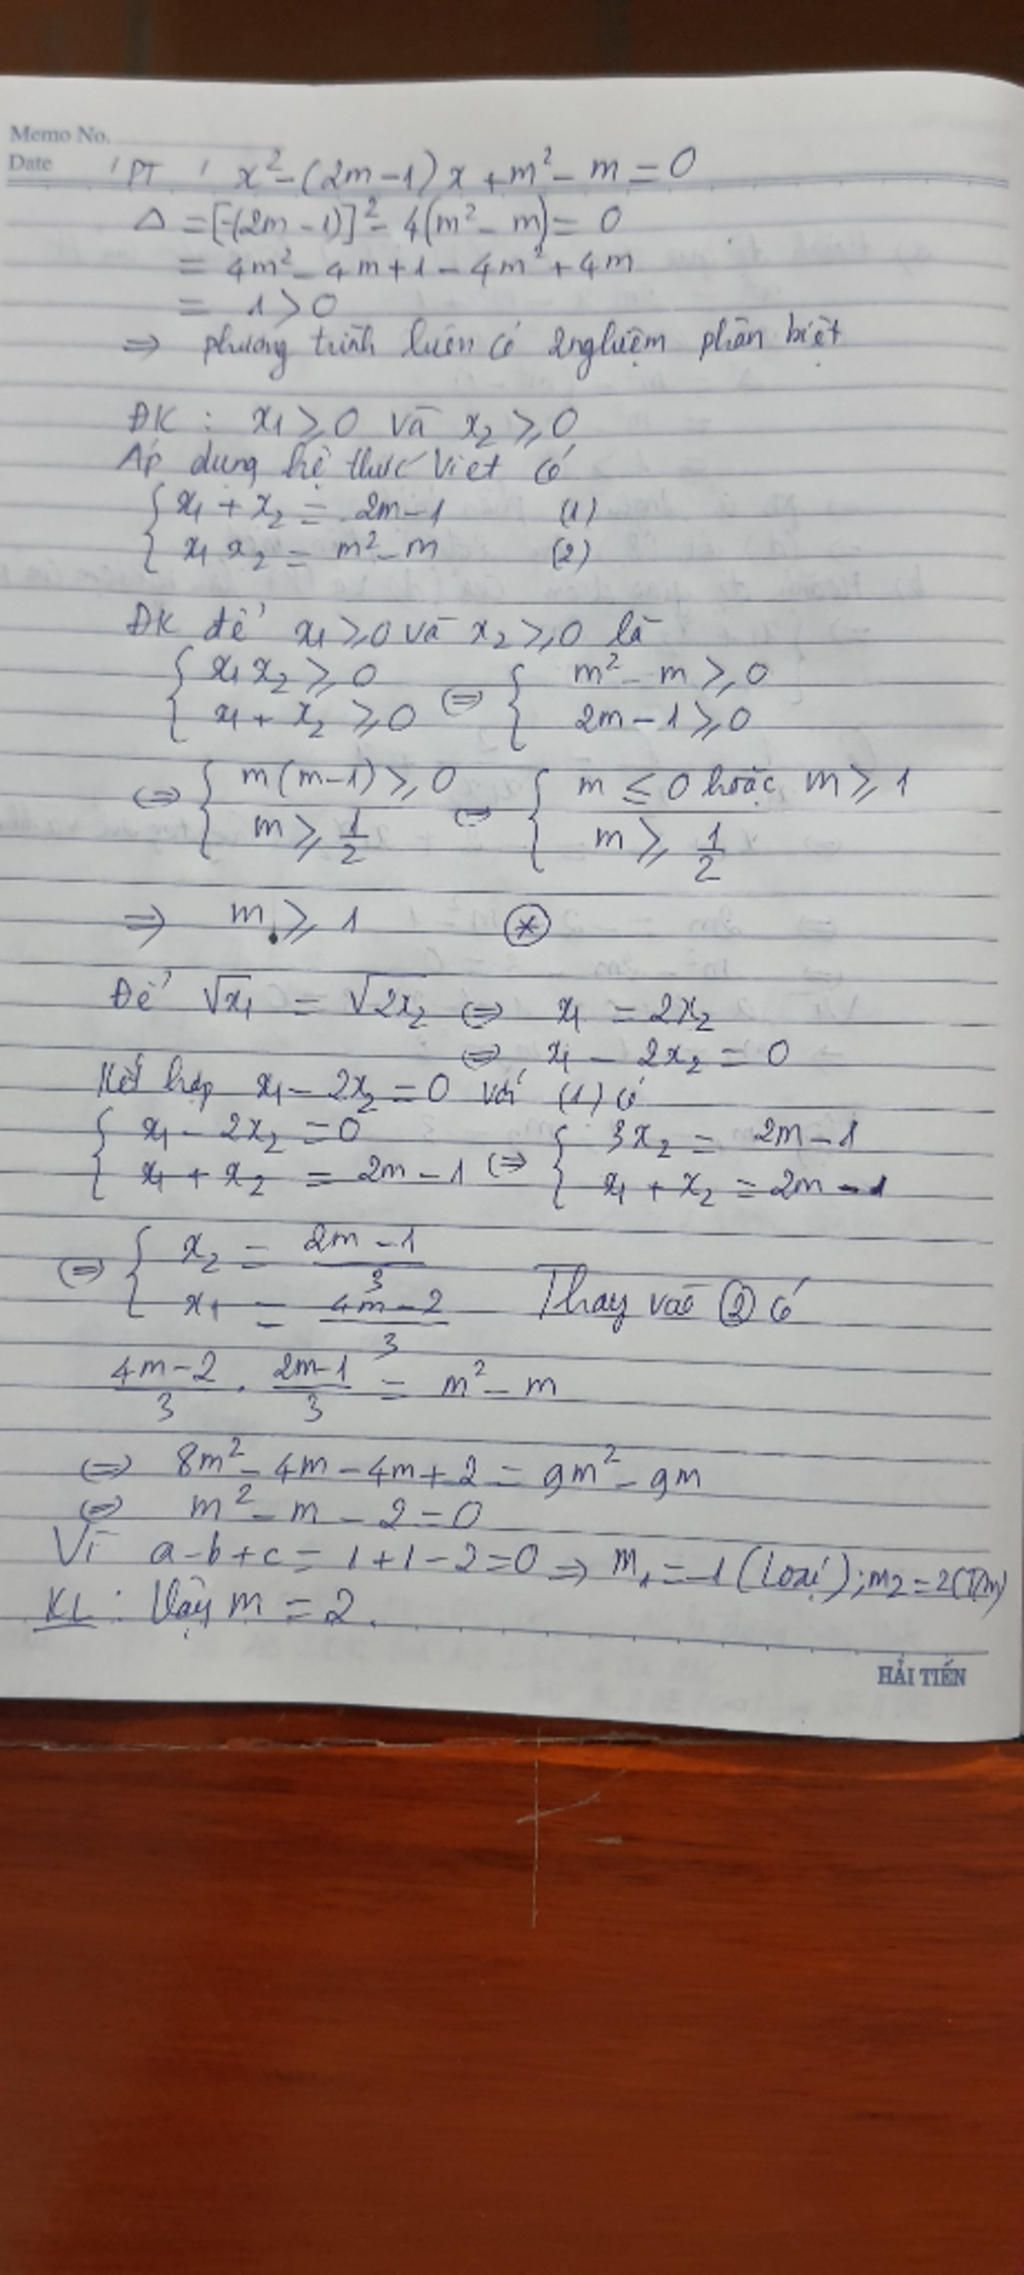 Memo No.
Date
PT x² - (2m - 1)x + m² - m = 0
Δ = [-(2m - 1)]² - 4(m² - m) = 0
= 4m² - 4m + 1 - 4m² + 4m
= 1 > 0
⇒ phương trình luôn có 2 nghiệm phân biệt
ĐK : x₁ ⩾ 0 và x₂ ⩾ 0
Áp dụng hệ thức Viet có
{ x₁ + x₂ = 2m - 1 (1)
{ x₁ x₂ = m² - m (2)
ĐK để x₁ ⩾ 0 và x₂ ⩾ 0 là
{ x₁ x₂ ⩾ 0 ⇔ { m² - m ⩾ 0
{ x₁ + x₂ ⩾ 0 { 2m - 1 ⩾ 0
⇔ { m(m - 1) ⩾ 0 ⇔ { m ≤ 0 hoặc m ⩾ 1
{ m ⩾ 1/2 { m ⩾ 1/2
⇒ m ⩾ 1 ⊛
Để √x₁ = √2x₂ ⇔ x₁ = 2x₂
⇔ x₁ - 2x₂ = 0
Kết hợp x₁ - 2x₂ = 0 với (1) có
{ x₁ - 2x₂ = 0 ⇔ { 3x₂ = 2m - 1
{ x₁ + x₂ = 2m - 1 { x₁ + x₂ = 2m - 1
⇔ { x₂ = (2m - 1)/3
{ x₁ = (4m - 2)/3 Thay vào ② có
(4m - 2)/3 . (2m - 1)/3 = m² - m
⇔ 8m² - 4m - 4m + 2 = 9m² - 9m
⇔ m² - m - 2 = 0
Vì a - b + c = 1 + 1 - 2 = 0 ⇒ m₁ = -1 (Loại) ; m₂ = 2 (T/m)
KL : Vậy m = 2.
HẢI TIẾN